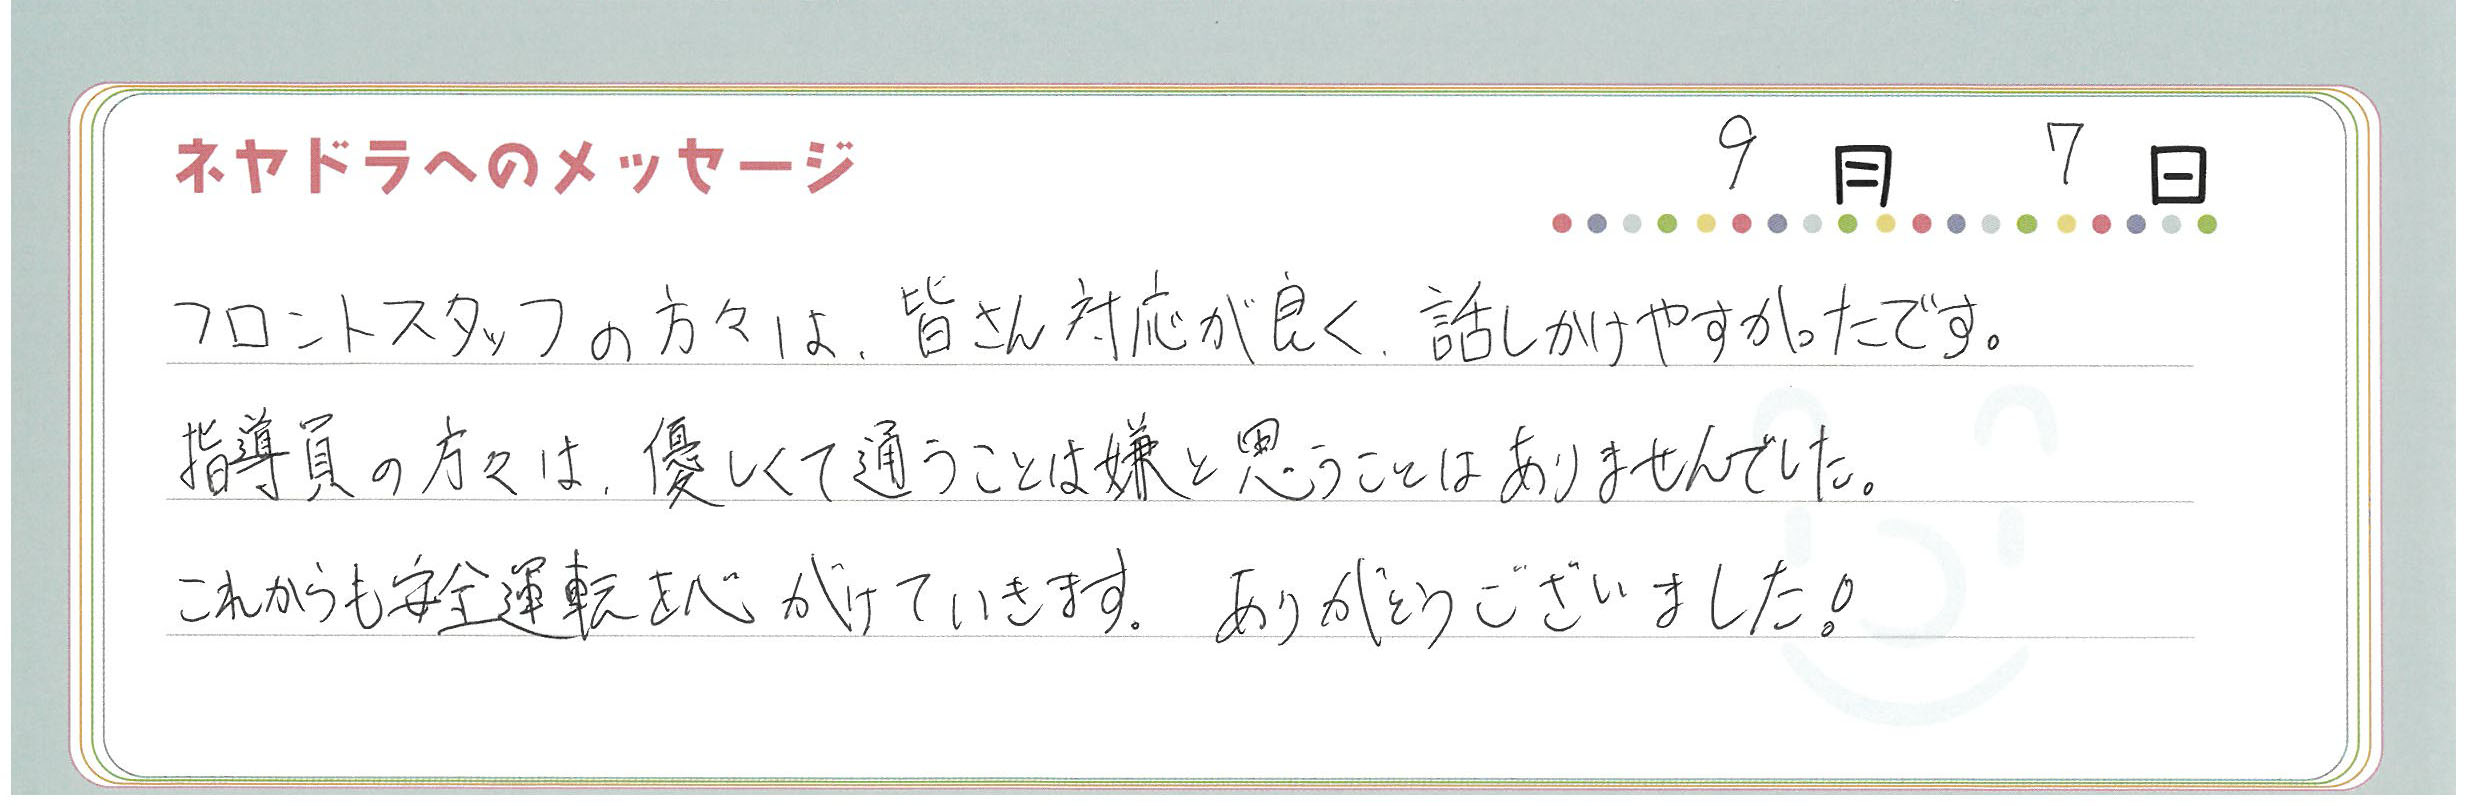 ネヤドラへのメッセージ
9月 7日
フロントスタッフの方々は、皆さん対応が良く、話しかけやすかったです。
指導員の方々は、優しくて通うことは嫌と思うことはありませんでした。
これからも安全運転を心がけていきます。 ありがとうございました!